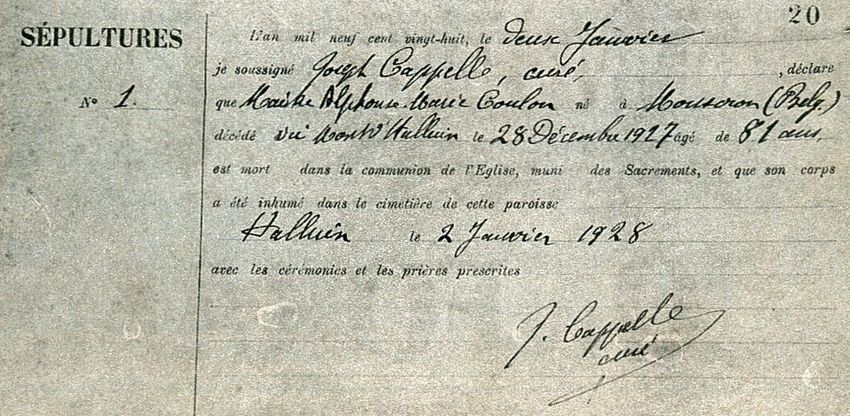 20
SÉPULTURES
N° 1.
L'an mil neuf cent vingt-huit, le deux Janvier
je soussigné Joseph Cappelle, curé, , déclare
que Alphonse Marie Coulon né à Mouscron (Belg.)
décédé Mont d'Halluin le 28 Décembre 1927 âgé de 81 ans,
est mort dans la communion de l'Eglise, muni des Sacrements, et que son corps
a été inhumé dans le cimetière de cette paroisse
Halluin le 2 Janvier 1928
avec les cérémonies et les prières prescrites
J. Cappelle
curé